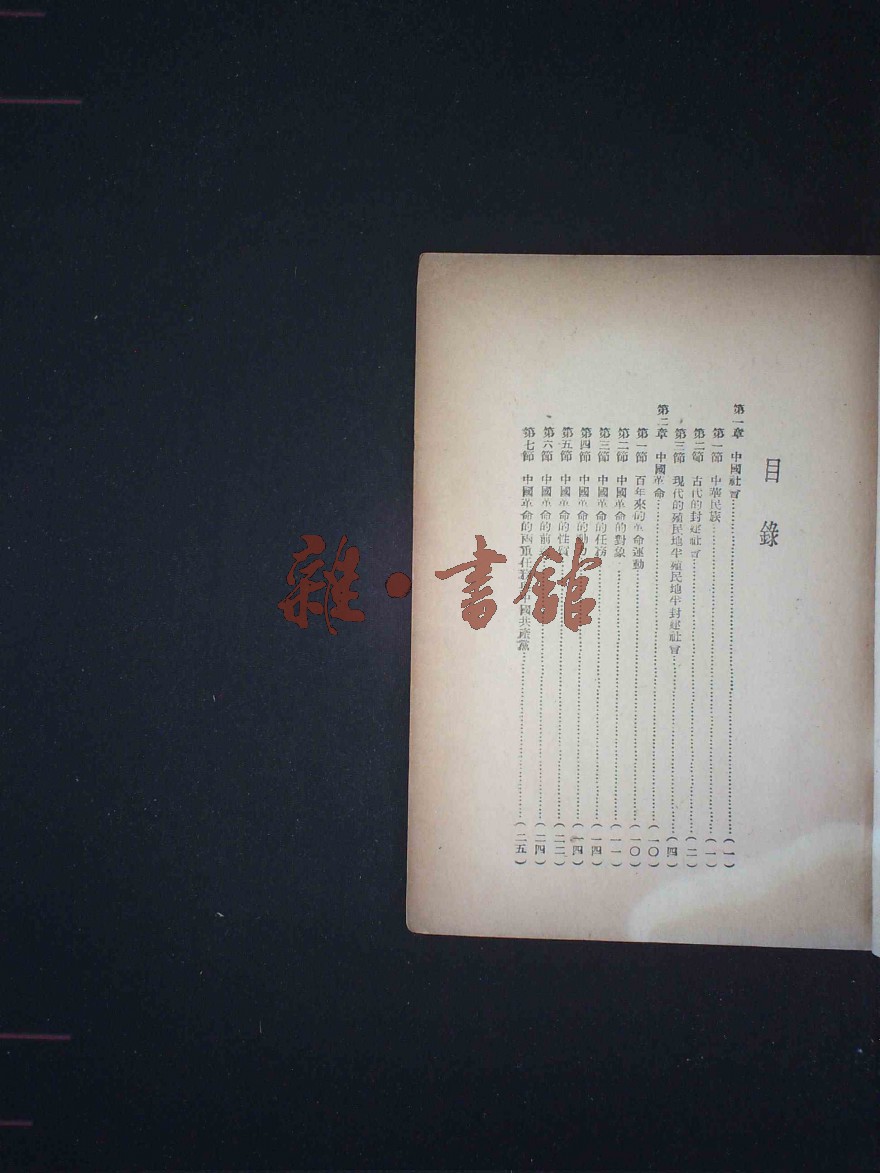 目錄
第一章 中國社會……(一)
第一節 中華民族……(一)
第二節 古代的封建社會……(二)
第三節 現代的殖民地半殖民地半封建社會……(四)
第二章 中國革命……(一〇)
第一節 百年來的革命運動……(一〇)
第二節 中國革命的對象……(一一)
第三節 中國革命的任務……(一四)
第四節 中國革命的動……(一四)
第五節 中國革命的性質……(二二)
第六節 中國革命的前……(二四)
第七節 中國革命的兩重任務與中國共產黨……(二五)
雜·書館